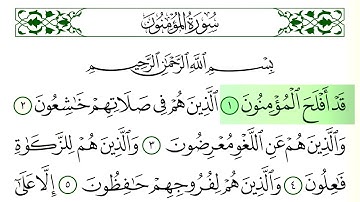 سُورَةُ المُؤْمِنُونَ
بِسْمِ ٱللَّهِ ٱلرَّحْمَٰنِ ٱلرَّحِيمِ
قَدْ أَفْلَحَ ٱلْمُؤْمِنُونَ ١ ٱلَّذِينَ هُمْ فِى صَلَاتِهِمْ خَٰشِعُونَ ٢
وَٱلَّذِينَ هُمْ عَنِ ٱللَّغْوِ مُعْرِضُونَ ٣ وَٱلَّذِينَ هُمْ لِلزَّكَوٰةِ
فَٰعِلُونَ ٤ وَٱلَّذِينَ هُمْ لِفُرُوجِهِمْ حَٰفِظُونَ ٥ إِلَّا عَلَىٰٓ